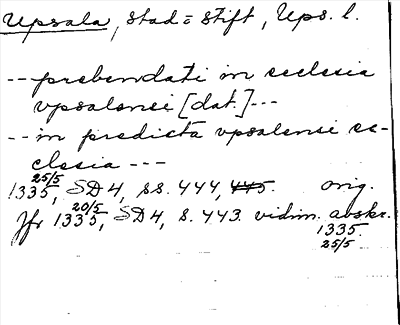 Uppsala, stad = stift, Ups. l.
-- prebendati in ecclesia
vpsalensi [dat.] ---
-- in predicta vpsalensi ec-
clesia ---
1335 25/5, SD 4, ss. 444, 445. orig.
Jfr 1335 20/5, SD 4, s. 443. vidim. avskr.
1335.
25/5